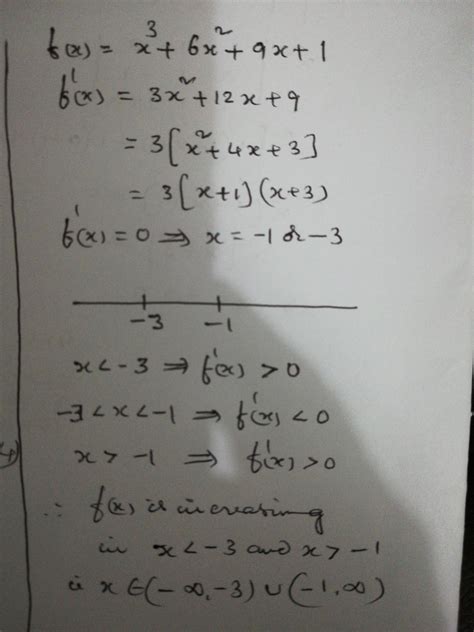 f(x) = x³ + 6x² + 9x + 1
f'(x) = 3x² + 12x + 9
= 3[x² + 4x + 3]
= 3[x+1)(x+3)
f'(x) = 0 ⇒ x = -1 or -3
-3 -1
x < -3 ⇒ f'(x) > 0
-3 < x < -1 ⇒ f'(x) < 0
x > -1 ⇒ f'(x) > 0
∴ f(x) is increasing
in x < -3 and x > -1
ie x ∈ (-∞, -3) ∪ (-1, ∞)